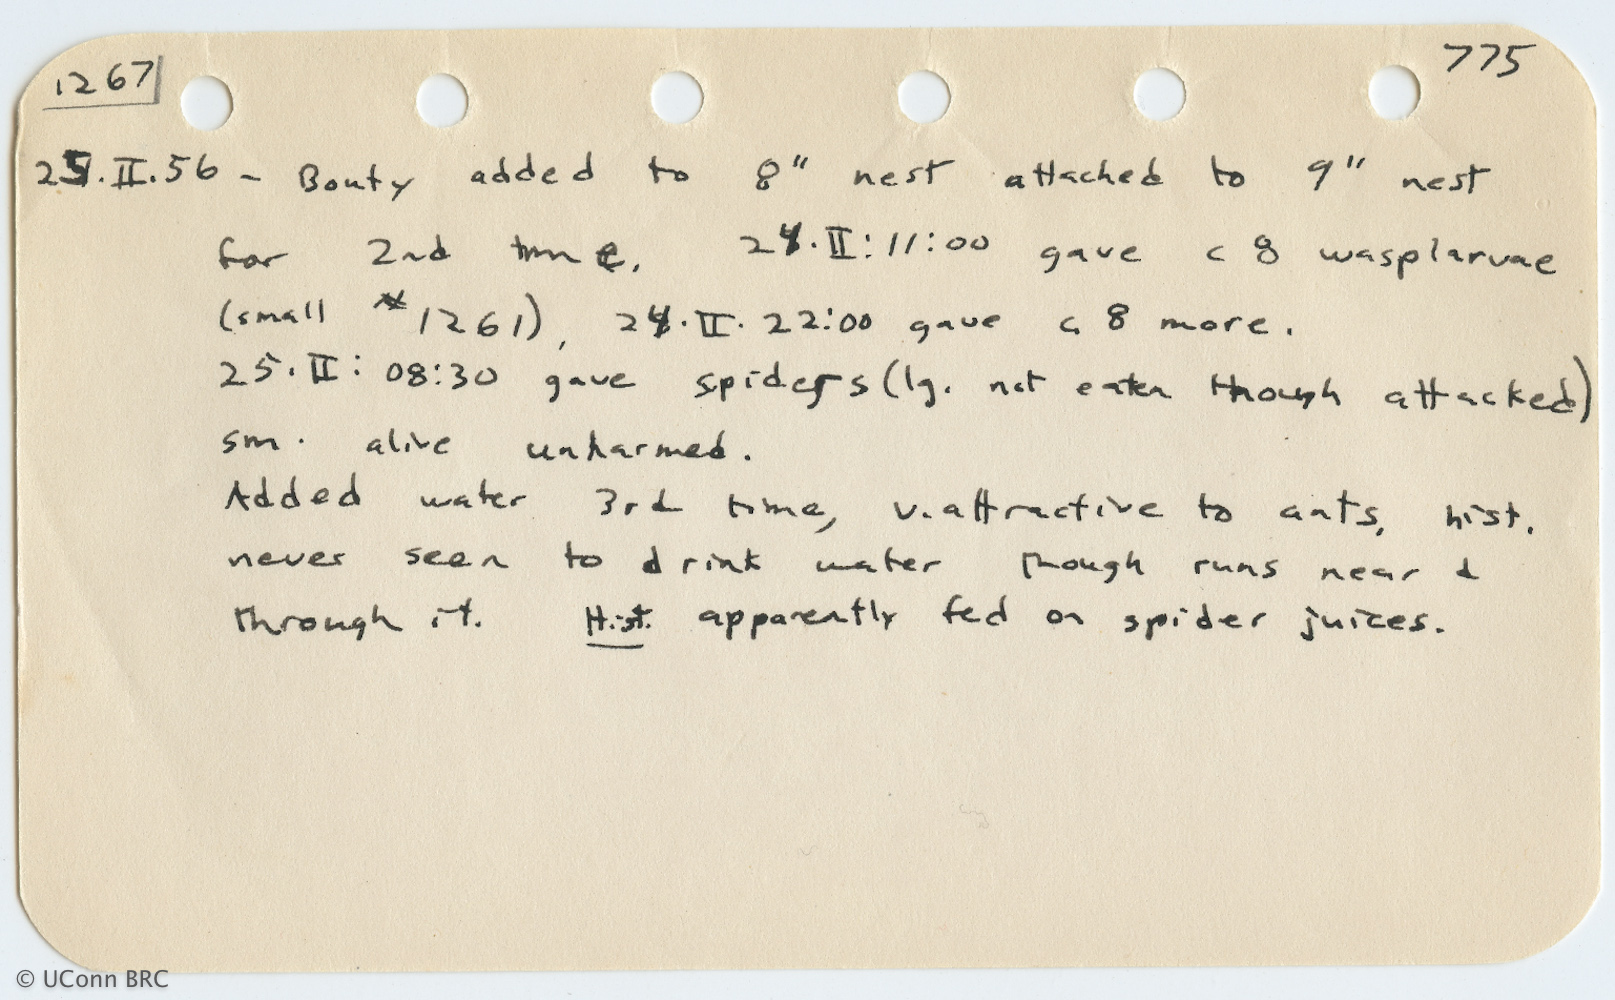 1267 775
25.II.56 - Bouty added to 8" nest attached to 9" nest
for 2nd time, 24.II:11:00 gave c 8 wasplarvae
(small # 1261), 24.II. 22:00 gave c 8 more.
25.II: 08:30 gave spiders (lg. not eaten though attacked)
sm. alive unharmed.
Added water 3rd time, v. attractive to ants, hist.
never seen to drink water though runs near &
through it. Hist. apparently fed on spider juices.
© UConn BRC